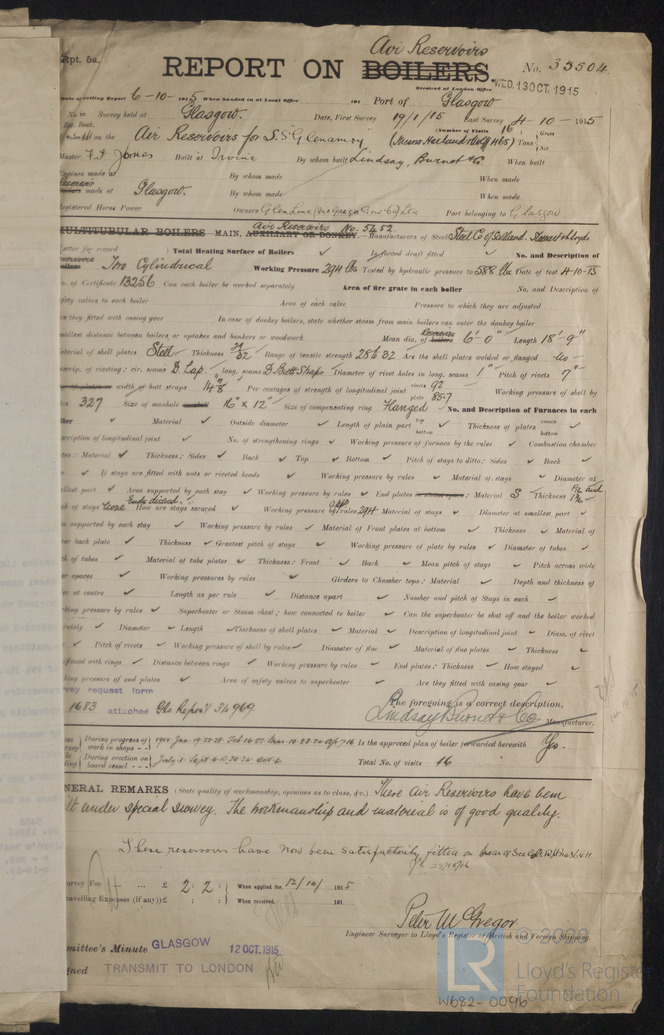 Rpt. 5a.
Air Reservoirs
REPORT ON BOILERS.
No. 33504
Received at London Office WED. 13 OCT 1915
Date of writing Report 6-10-1915 When handed in at Local Office 191 Port of Glasgow
No. in Survey held at Glasgow. Date, First Survey 19/1/15 Last Survey 4-10-1915
Reg. Book. (Number of Visits 16)
on the Air Reservoirs for S.S "Glenamoy" (Messrs Harland & Wolff 465) Tons Gross Net
Master F. J. Jones Built at Irvine By whom built Lindsay, Burnet & Co. When built
Engines made at By whom made When made
Boilers made at Glasgow. By whom made When made
Registered Horse Power Owners Glen Line Port belonging to Glasgow
Air Reservoirs No. 5452
MULTITUBULAR BOILERS - MAIN, AUXILIARY OR DONKEY. Manufacturers of Steel Steel Co of Scotland. Stewarts & Lloyds
Letter for record Total Heating Surface of Boilers ✓ Is forced draft fitted ✓ No. and Description of
Boilers Two Cylindrical Working Pressure 294 lbs Tested by hydraulic pressure to 588 lbs Date of test 4-10-15
No. of Certificate 13256 Can each boiler be worked separately Area of fire grate in each boiler No. and Description of
safety valves to each boiler Area of each valve Pressure to which they are adjusted
Are they fitted with easing gear In case of donkey boilers, state whether steam from main boilers can enter the donkey boiler
Smallest distance between boilers or uptakes and bunkers or woodwork Mean dia. of boilers 6'-0" Length 18'-9"
Material of shell plates Steel Thickness 29/32 Range of tensile strength 28 & 32 Are the shell plates welded or flanged no
Descrip. of riveting: cir. seams D. Lap. long. seams D. Butt Straps Diameter of rivet holes in long. seams 1" Pitch of rivets 7"
width of butt straps 14 7/8 Per centages of strength of longitudinal joint rivets 92 plate 85.7 Working pressure of shell by
rules 327 Size of manhole 16" x 12" Size of compensating ring Flanged No. and Description of Furnaces in each
boiler Material ✓ Outside diameter ✓ Length of plain part top bottom Thickness of plates crown bottom ✓
Description of longitudinal joint ✓ No. of strengthening rings ✓ Working pressure of furnace by the rules ✓ Combustion chamber
plates: Material ✓ Thickness: Sides ✓ Back ✓ Top ✓ Bottom ✓ Pitch of stays to ditto: Sides ✓ Back ✓
Top ✓ If stays are fitted with nuts or riveted heads ✓ Working pressure by rules ✓ Material of stays ✓ Diameter at
smallest part ✓ Area supported by each stay ✓ Working pressure by rules ✓ End plates in steam space: Material S Thickness
Pitch of stays None How are stays secured Ends dished. Working pressure by rules 294 Material of stays ✓ Diameter at smallest part ✓
Area supported by each stay ✓ Working pressure by rules ✓ Material of Front plates at bottom ✓ Thickness ✓ Material of
Lower back plate ✓ Thickness ✓ Greatest pitch of stays ✓ Working pressure of plate by rules ✓ Diameter of tubes ✓
Pitch of tubes ✓ Material of tube plates ✓ Thickness: Front ✓ Back ✓ Mean pitch of stays ✓ Pitch across wide
water spaces ✓ Working pressures by rules ✓ Girders to Chamber tops: Material ✓ Depth and thickness of
girder at centre ✓ Length as per rule ✓ Distance apart ✓ Number and pitch of Stays in each ✓
Working pressure by rules ✓ Superheater or Steam chest; how connected to boiler ✓ Can the superheater be shut off and the boiler worked
separately ✓ Diameter ✓ Length ✓ Thickness of shell plates ✓ Material ✓ Description of longitudinal joint ✓ Diam. of rivet
holes ✓ Pitch of rivets ✓ Working pressure of shell by rules ✓ Diameter of flue ✓ Material of flue plates ✓ Thickness ✓
If stiffened with rings ✓ Distance between rings ✓ Working pressure by rules ✓ End plates: Thickness ✓ How stayed ✓
Working pressure of end plates ✓ Area of safety valves to superheater ✓ Are they fitted with easing gear ✓
Survey request form
1683 attached Gls Report No 34969.
The foregoing is a correct description,
Lindsay Burnet & Co Manufacturer.
During progress of work in shops - - 1915 Jan-19-22-28 Feb 16-22 Mar 10-23-24 Apr 7-16 Is the approved plan of boiler forwarded herewith Yes.
During erection on board vessel - - - Total No. of visits 16
GENERAL REMARKS (State quality of workmanship, opinions as to class, &c.) These Air Reservoirs have been
built under special survey. The workmanship and material is of good quality.
These reservoirs have now been satisfactorily fitted on board
Survey Fee ... ... £ 2 : 2 : When applied for, 12/10/1915
Travelling Expenses (if any) £ : : When received, 191
Peter McGregor
Engineer Surveyor to Lloyd's Register of British and Foreign Shipping.
Committee's Minute GLASGOW 12 OCT. 1915
Assigned TRANSMIT TO LONDON
LR
© 2020
Lloyd's Register
Foundation
W682-0096